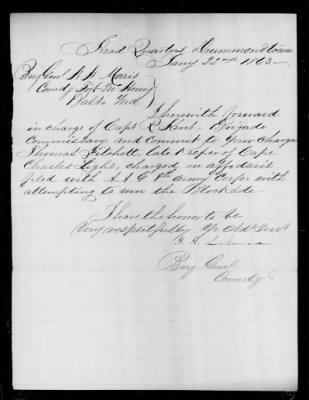 Head Quarters Drummondtown
Jany 22nd 1863
Brig Genl W W Morris
Comdg Fort Mc Henry
Balto Md
I herewith forward
in charge of Capt R Kent. Brigade
Commissary and Commit to your charge
Thomas Fitchett late keeper of Cape
Charles Light, charged on affidavit
filed with A. A. G. 8th Army Corps with
attempting to run the Blockade
I have the honor to be
Very respectfully Yr Obdt Servt
H. H.
Brig Genl
Comdg